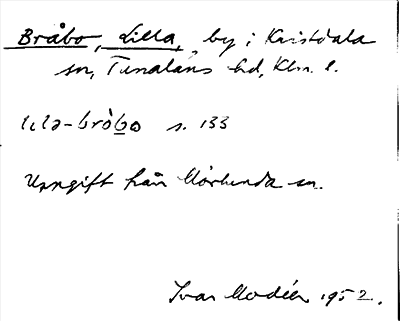 Bråbo, Lilla, by i Kristdala
sn, Tunaläns hd, Klm. l.
lıla-bròbo s. 133
Uppgift från Mörlunda sn.
Ivar Modéer 1952.